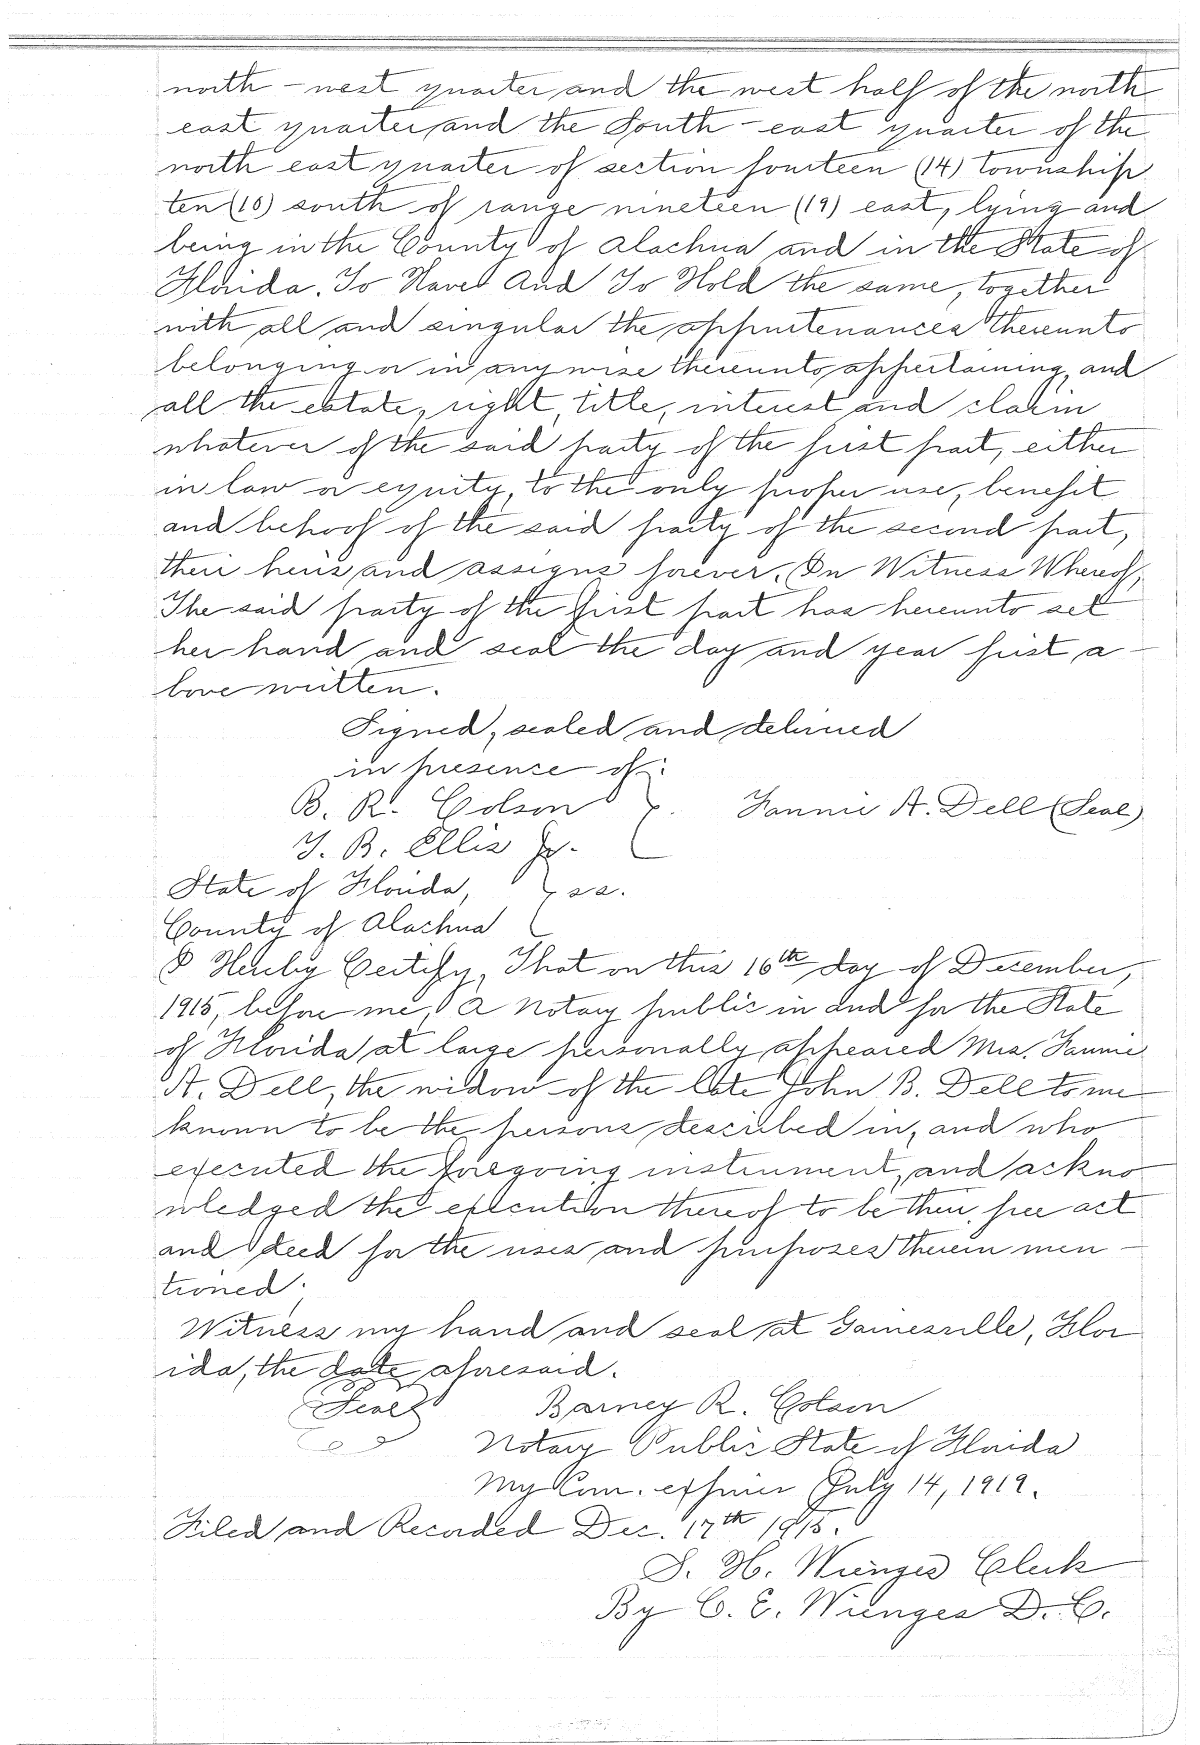 north - west quarter and the west half of the north
east quarter and the South - east quarter of the
north east quarter of section fourteen (14) township
ten (10) south of range nineteen (19) east, lying and
being in the County of Alachua and in the State of
Florida. To Have And To Hold the same, together
with all and singular the appurtenances thereunto
belonging or in anywise thereunto appertaining, and
all the estate, right, title, interest and claim
whatever of the said party of the first part, either
in law or equity, to the only proper use, benefit
and behoof of the said party of the second part,
their heirs and assigns forever. In Witness Whereof,
The said party of the first part has hereunto set
her hand and seal the day and year first a -
bove written.
Signed, sealed and delivered
in presence of:
B. R. Colson } Fannie A. Dell (Seal)
T. B. Ellis Jr.
State of Florida, } ss.
County of Alachua
I Hereby Certify, That on this 16th day of December,
1915, before me, A Notary public in and for the State
of Florida at large personally appeared Mrs. Fannie
A. Dell, the widow of the late John B. Dell to me
known to be the persons described in, and who
executed the foregoing instrument, and ackno
wledged the execution thereof to be their free act
and deed for the uses and purposes therein men -
tioned.
Witness my hand and seal at Gainesville, Flor
ida, the date aforesaid.
(Seal) Barney R. Colson
Notary Public State of Florida
My Com. expires July 14, 1919.
Filed and Recorded Dec. 17th 1915.
S. H. Wienges Clerk
By C. E. Wienges D. C.